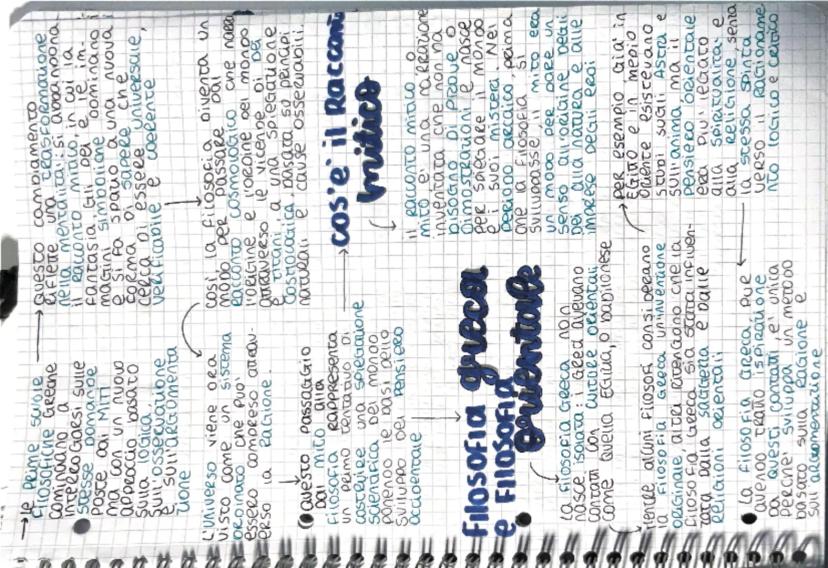 → le prime suole
filosofiche Greche
cominciano a
interrogarsi sulle
stesse domande
poste dai Miti
ma con un nuovo
approccio basato
sulla logica,
sull'osservazione
e sull'argomenta
zione
→ questo cambiamento
riflette una trasformazione
nella mentalità: si abbandona
il racconto mitico, in cui la
fantasia, gli dei e le im-
magini simboliche dominano
e si fa spazio a una nuova
forma di sapere che
cerca di essere universale,
verificabile e coerente
così la filosofia diventa un
modo per passare dal
racconto cosmologico che narra
l'origine e l'ordine del mondo
attraverso le vicende di dei
e titani a una spiegazione
basata su principi
naturali e cause osservabili
L'universo viene ora
visto come un sistema
ordinato che può
essere compreso attrav-
erso la ragione.
questo passaggio
dal mito alla
filosofia rappresenta
un primo tentativo di
costruire una spiegazione
scientifica del mondo
ponendo le basi dello
sviluppo del pensiero
occidentale
cos'è il Racconto
mitico
il racconto mitico o
mito è una narrazione
inventata che non ha
bisogno di prove o
dimostrazioni e nasce
per spiegare il mondo
e i suoi misteri. Nel
periodo arcaico, prima
che la filosofia si
sviluppasse, il mito era
un modo per dare un
senso all'origine degli
dei alla natura e alle
imprese degli eroi
Filosofia greca
e Filosofia
orientale
La filosofia Greca non
nasce isolata: i Greci avevano
contatti con culture orientali
come quella Egizia, o babilonese
Mentre alcuni filosofi considerano
la filosofia Greca un'invenzione
originale, altri ritengono che la
filosofia Greca sia stata influen-
zata dalla saggezza e dalle
religioni orientali
per esempio già in
Egitto e in medio
oriente esistevano
studi sugli Astri e
sull'anima, ma il
pensiero orientale
era più legato
alla spiritualità e
alla religione, senza
la stessa spinta
verso il ragioname
nto logico e critico
La filosofia Greca, pur
avendo tratto ispirazione
da questi contatti, è unica
perché sviluppa un metodo
basato sulla ragione e
sull'argomentazione